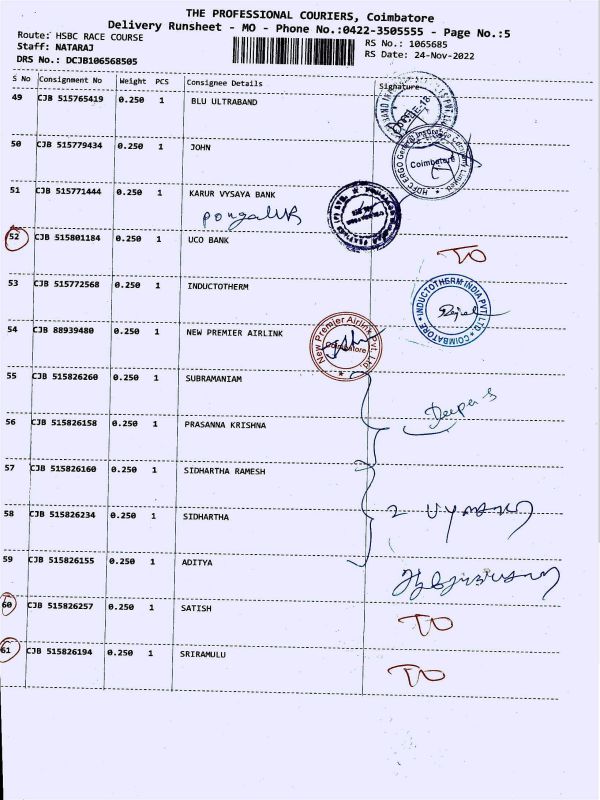 THE PROFESSIONAL COURIERS, Coimbatore
Delivery Runsheet - MO - Phone No.:0422-3505555 - Page No.:5
Route: HSBC RACE COURSE
Staff: NATARAJ
DRS No.: DCJB106568505
RS No.: 1065685
RS Date: 24-Nov-2022
S No Consignment No Weight PCS Consignee Details Signature
49 CJB 515765419 0.250 1 BLU ULTRABAND
50 CJB 515779434 0.250 1 JOHN
HDFC ERGO General Insurance Company Limited Coimbatore
51 CJB 515771444 0.250 1 KARUR VYSAYA BANK
52 CJB 515801184 0.250 1 UCO BANK
TO
53 CJB 515772568 0.250 1 INDUCTOTHERM
INDUCTOTHERM INDIA PVT LTD COIMBATORE
54 CJB 88939480 0.250 1 NEW PREMIER AIRLINK
New Premier Airlink Pvt. Ltd. Coimbatore
55 CJB 515826260 0.250 1 SUBRAMANIAM
Deepa S
56 CJB 515826158 0.250 1 PRASANNA KRISHNA
57 CJB 515826160 0.250 1 SIDHARTHA RAMESH
58 CJB 515826234 0.250 1 SIDHARTHA
59 CJB 515826155 0.250 1 ADITYA
60 CJB 515826257 0.250 1 SATISH
TO
61 CJB 515826194 0.250 1 SRIRAMULU
TO